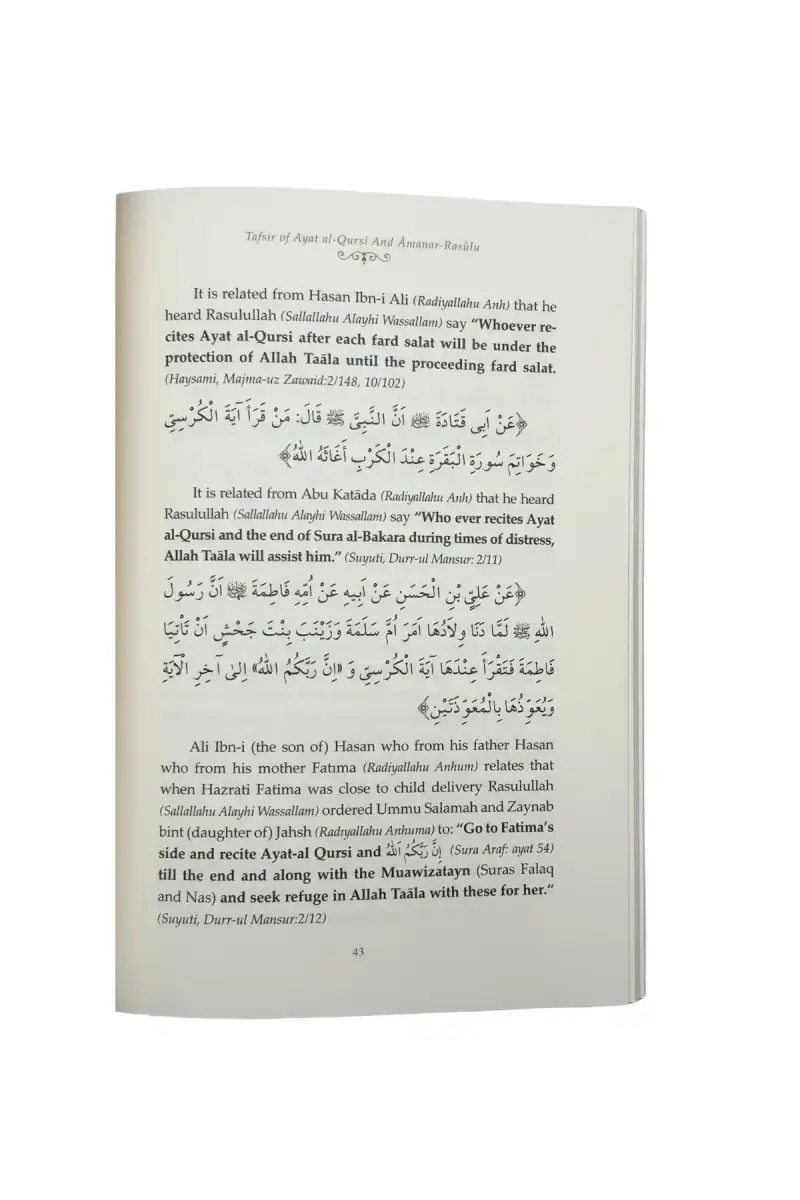 Tafsir of Ayat al-Qursi And Âmanar-Rasûlu
It is related from Hasan Ibn-i Ali (Radiyallahu Anh) that he
heard Rasulullah (Sallallahu Alayhi Wassallam) say “Whoever re-
cites Ayat al-Qursi after each fard salat will be under the
protection of Allah Taāla until the proceeding fard salat.
(Haysami, Majma-uz Zawaid:2/148, 10/102)
﴿عَنْ اَبِى قَتَادَةَ ﷺ اَنَّ النَّبِىَّ ﷺ قَالَ: مَنْ قَرَأَ اٰيَةَ الْكُرْسِىِّ
وَخَوَاتِمَ سُورَةِ الْبَقَرَةِ عِنْدَ الْكَرْبِ أَغَاثَهُ اللهُ﴾
It is related from Abu Katāda (Radiyallahu Anh) that he heard
Rasulullah (Sallallahu Alayhi Wassallam) say “Who ever recites Ayat
al-Qursi and the end of Sura al-Bakara during times of distress,
Allah Taāla will assist him.” (Suyuti, Durr-ul Mansur: 2/11)
﴿عَنْ عَلِىِّ بْنِ الْحَسَنِ عَنْ اَبِيهِ عَنْ اُمِّهِ فَاطِمَةَ اَنَّ رَسُولَ
اللهِ ﷺ لَمَّا دَنَا وِلَادُهَا اَمَرَ اُمَّ سَلَمَةَ وَزَيْنَبَ بِنْتَ جَحْشٍ اَنْ تَأْتِيَا
فَاطِمَةَ فَتَقْرَأَ عِنْدَهَا اٰيَةَ الْكُرْسِىِّ وَ «اِنَّ رَبَّكُمُ اللهُ» اِلٰى اٰخِرِ الْاٰيَةِ
وَيُعَوِّذُهَا بِالْمُعَوِّذَتَيْنِ﴾
Ali Ibn-i (the son of) Hasan who from his father Hasan
who from his mother Fatıma (Radiyallahu Anhum) relates that
when Hazrati Fatima was close to child delivery Rasulullah
(Sallallahu Alayhi Wassallam) ordered Ummu Salamah and Zaynab
bint (daughter of) Jahsh (Radıyallahu Anhuma) to: “Go to Fatima’s
side and recite Ayat-al Qursi and اِنَّ رَبَّكُمُ اللهُ (Sura Araf: ayat 54)
till the end and along with the Muawizatayn (Suras Falaq
and Nas) and seek refuge in Allah Taāla with these for her.“
(Suyuti, Durr-ul Mansur:2/12)
43